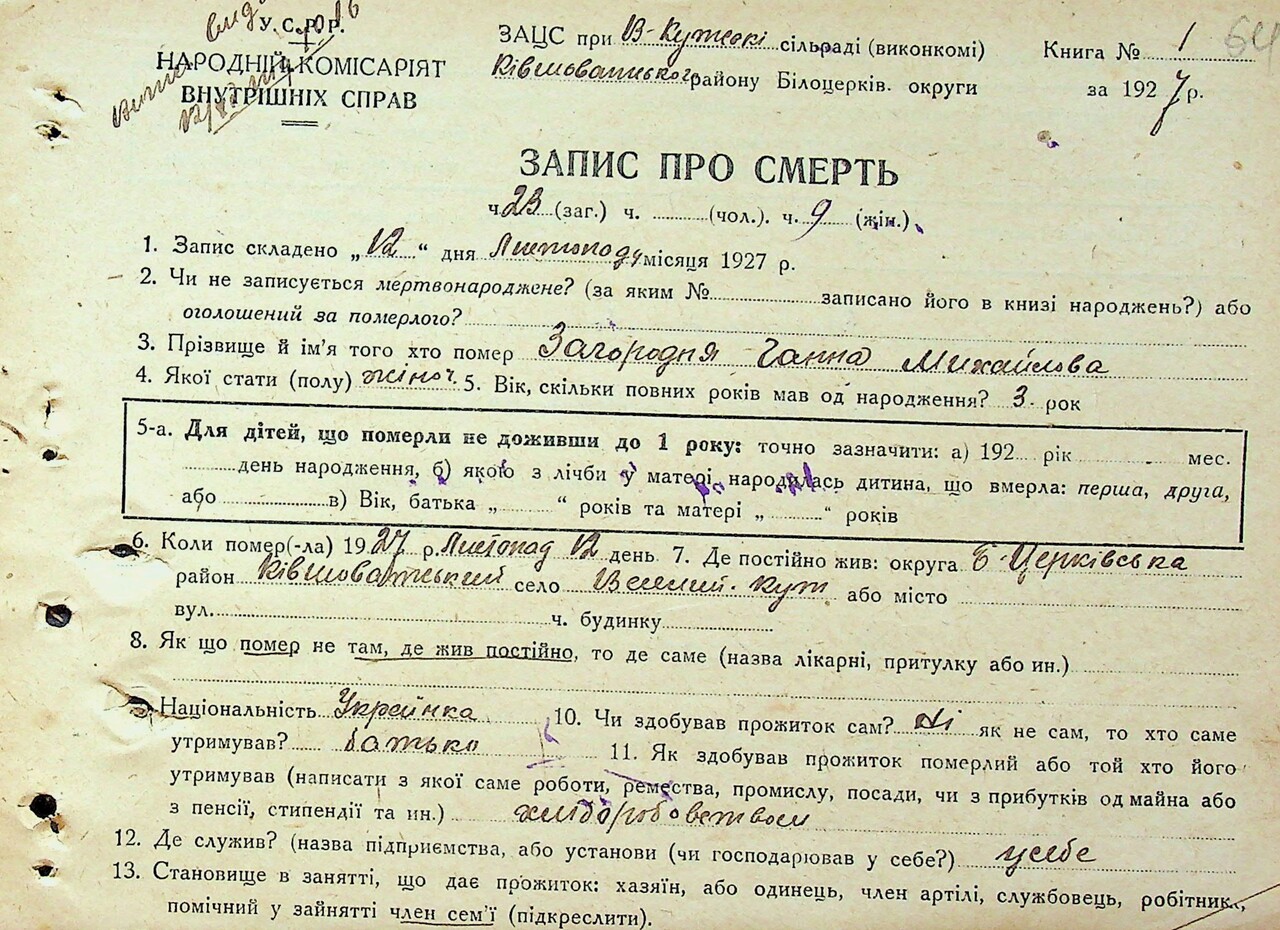 У.С.Р.Р.
НАРОДНІЙ КОМІСАРІЯТ
ВНУТРІШНІХ СПРАВ
ЗАЦС при В-Кутскі сільраді (виконкомі)
Ківшоватського району Білоцерків. округи
Книга № 1
64
за 1927 р.
ЗАПИС ПРО СМЕРТЬ
ч. 23 (заг.) ч. (чол.). ч. 9 (жін.)
1. Запис складено „12“ дня Листопаду місяця 1927 р.
2. Чи не записується мертвонароджене? (за яким № записано його в книзі народжень?) або
оголошений за померлого?
3. Прізвище й ім'я того хто помер Загородня Ганна Михайлова
4. Якої стати (полу) жіноч. 5. Вік, скільки повних років мав од народження? 3 рок
5-а. Для дітей, що померли не доживши до 1 року: точно зазначити: а) 192 рік мес.
день народження, б) якою з лічби у матері народилась дитина, що вмерла: перша, друга,
або в) Вік, батька „ “ років та матері „ “ років
6. Коли помер(-ла) 1927 р. Листопад 12 день 7. Де постійно жив: округа Б-Церківська
район Ківшоватський село Великий-кут або місто
вул. ч. будинку
8. Як що помер не там, де жив постійно, то де саме (назва лікарні, притулку або ин.)
9. Національність Украінка 10. Чи здобував прожиток сам? Ні як не сам, то хто саме
утримував? батько 11. Як здобував прожиток померлий або той хто його
утримував (написати з якої саме роботи, ремества, промислу, посади, чи з прибутків од майна або
з пенсії, стипендії та ин.) хліборобством
12. Де служив? (назва підприємства, або установи (чи господарював у себе?) усебе
13. Становище в занятті, що дає прожиток: хазяїн, або одинець, член артілі, службовець, робітник,
помічний у зайнятті член сем'ї (підкреслити).